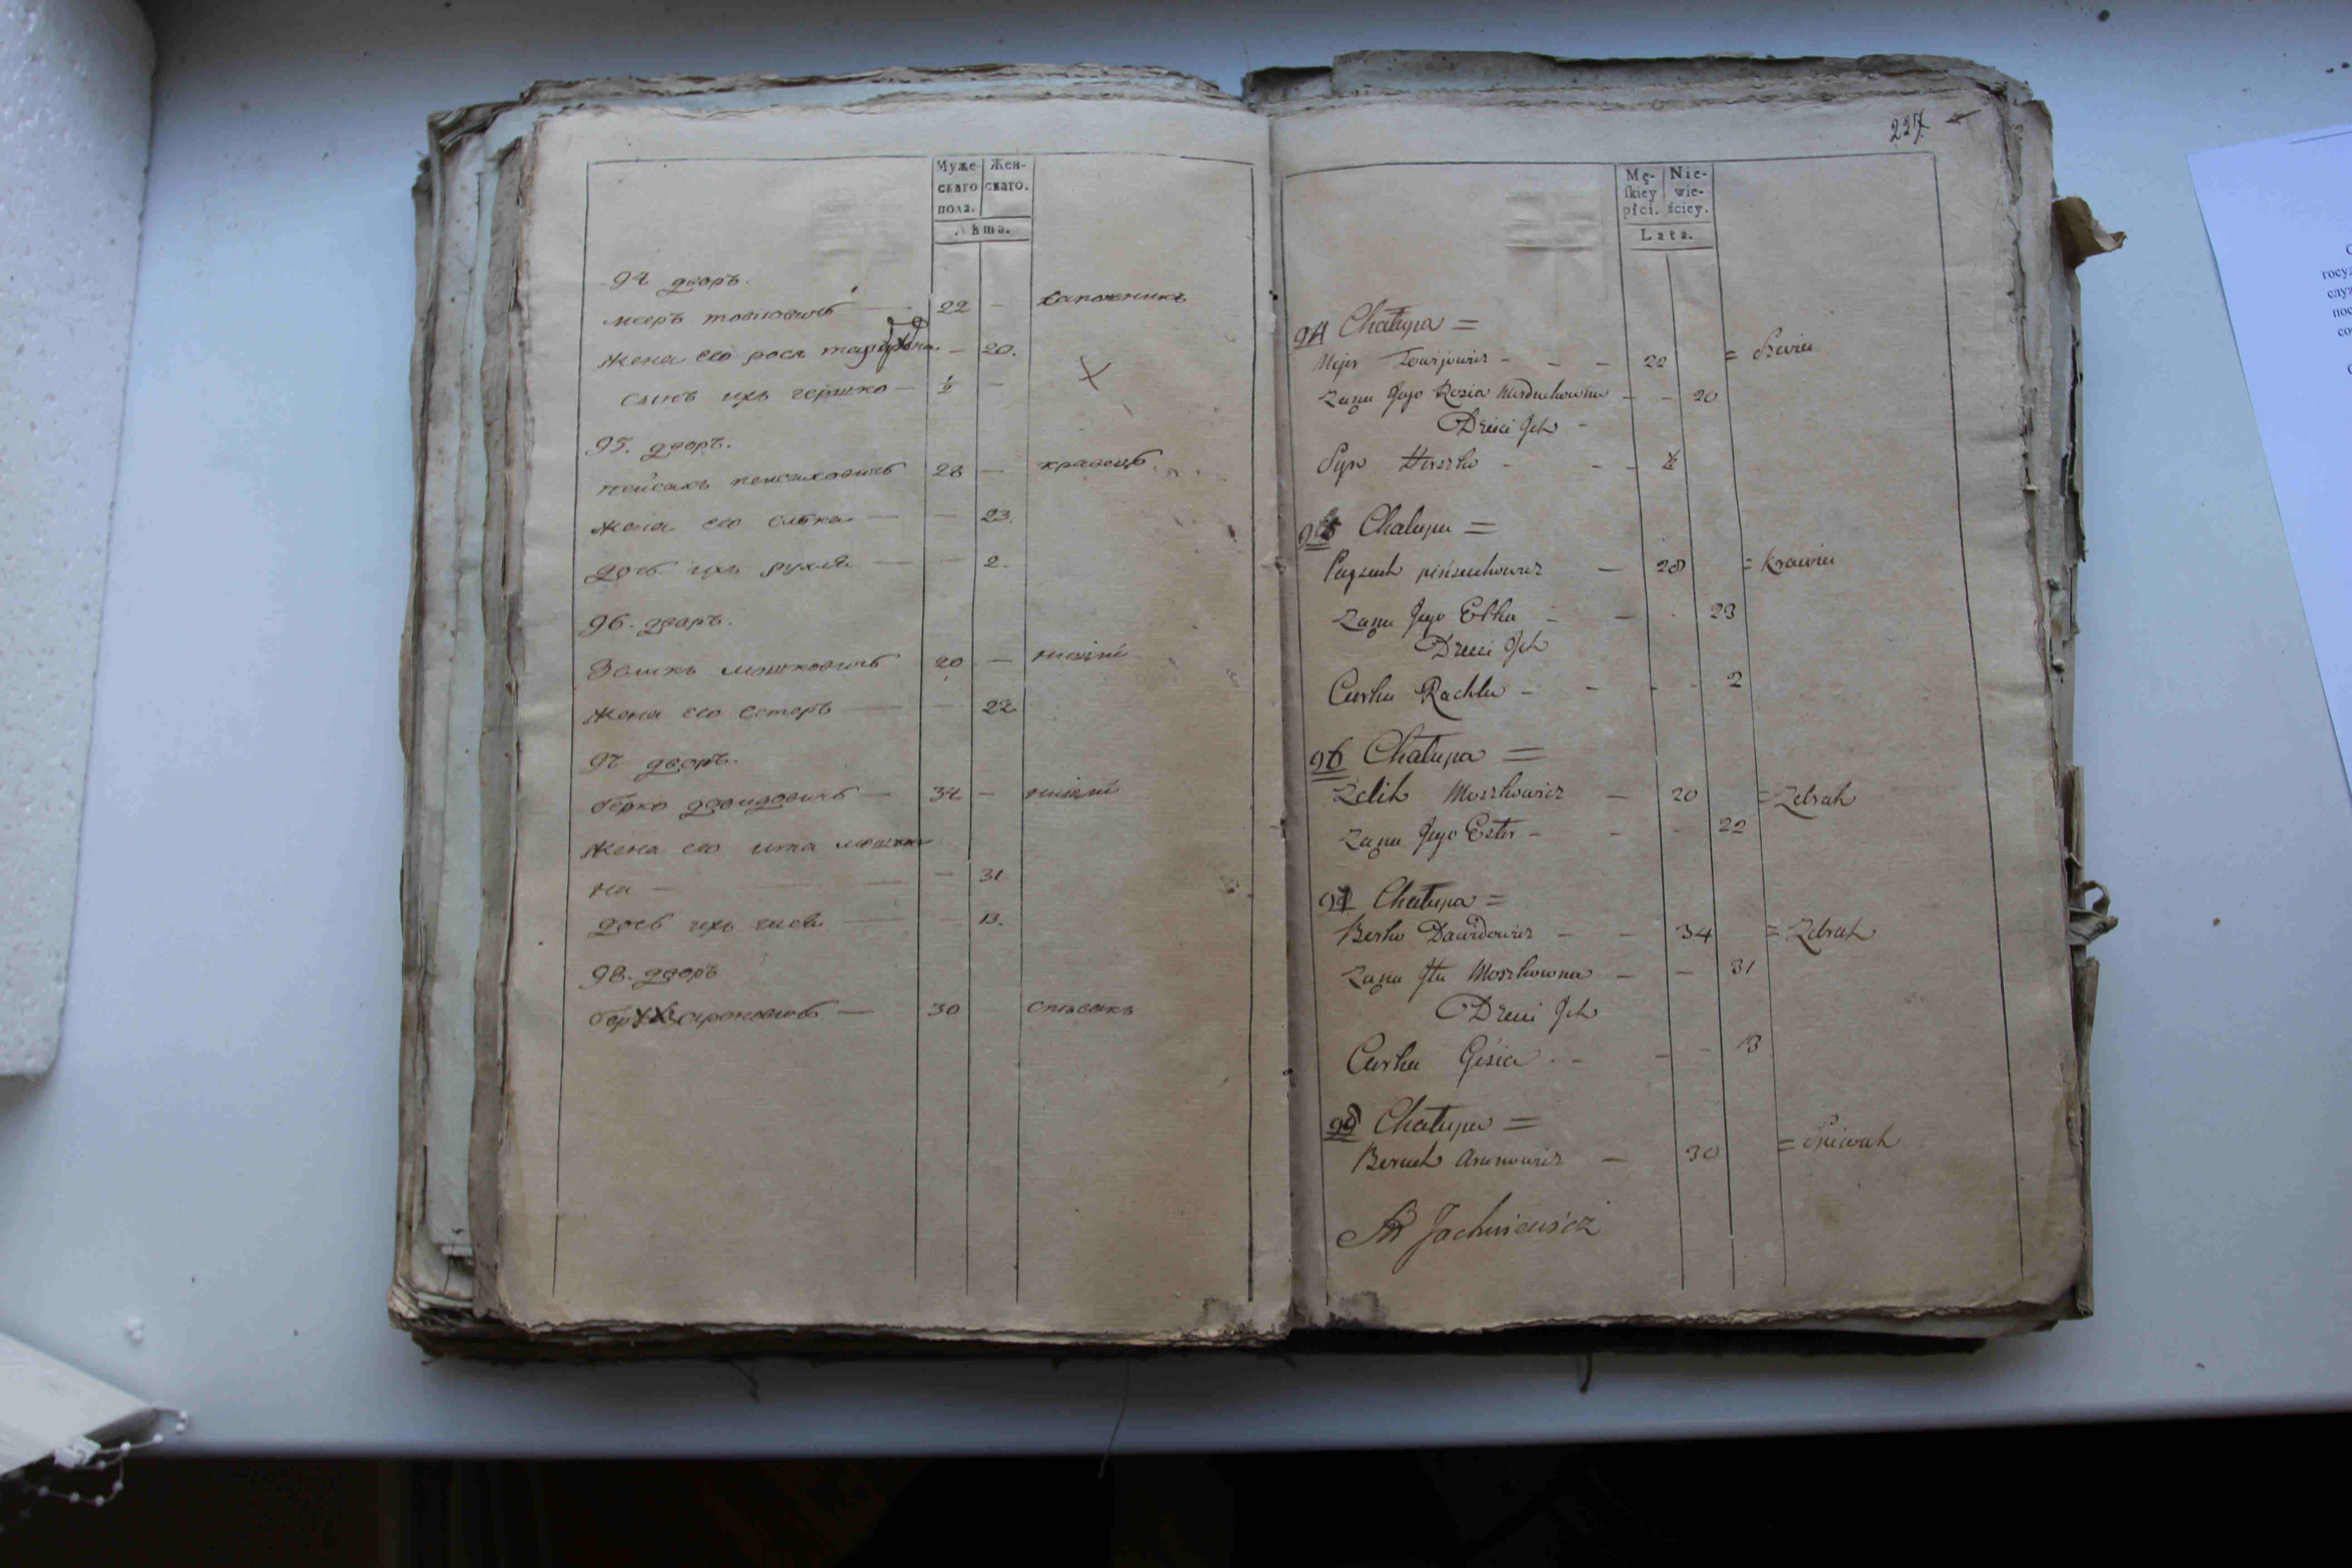 Муже- Жен-
скаго скаго.
пола.
Лѣта.
94 дворъ.
меръ товиовичъ — 22 — сапожникъ
жена его рося — 20.
сынъ ихъ гершко — ½ —
95. дворъ.
пейсахъ пейсаховичъ 28 — кравецъ
жена его елька — — 23.
дочь ихъ рухля — — 2.
96. дворъ.
Зеликъ мошковичъ 20 — нищій
жена его естеръ — — 22
97 дворъ.
берко давидовичъ — 34 — нищій
жена его ита мошков
на — — 31
дочь ихъ гися — — 13.
98. дворъ
ароновичъ — 30 спѣвакъ
227
Mę- Nie-
skiey wie-
płci. ściey.
Lata.
94 Chałupa =
Mejer Towijowicz - - - 22 =
Zana Jego Rozia Marduchowna - - 20
Dzieci Ich -
Syn Herszko - - - ½
95 Chałupa =
Payzach — 28 = Krawiec
Zana Jego Elka - — - 23
Dzieci Ich
Curka Rachla - - - - 2
96 Chałupa =
Zelik Moszkowicz — 20 = Zebrak
Zana Jego Ester - - - 22
97 Chałupa =
Berko Dawidowicz - — 34 = Zebrak
Zana Ita Moszkowna — — 31
Dzieci Ich
Curka Gisia - - — - 13
98 Chałupa =
Beruch Aronowicz — 30 = Spiewak
Jachniewicz